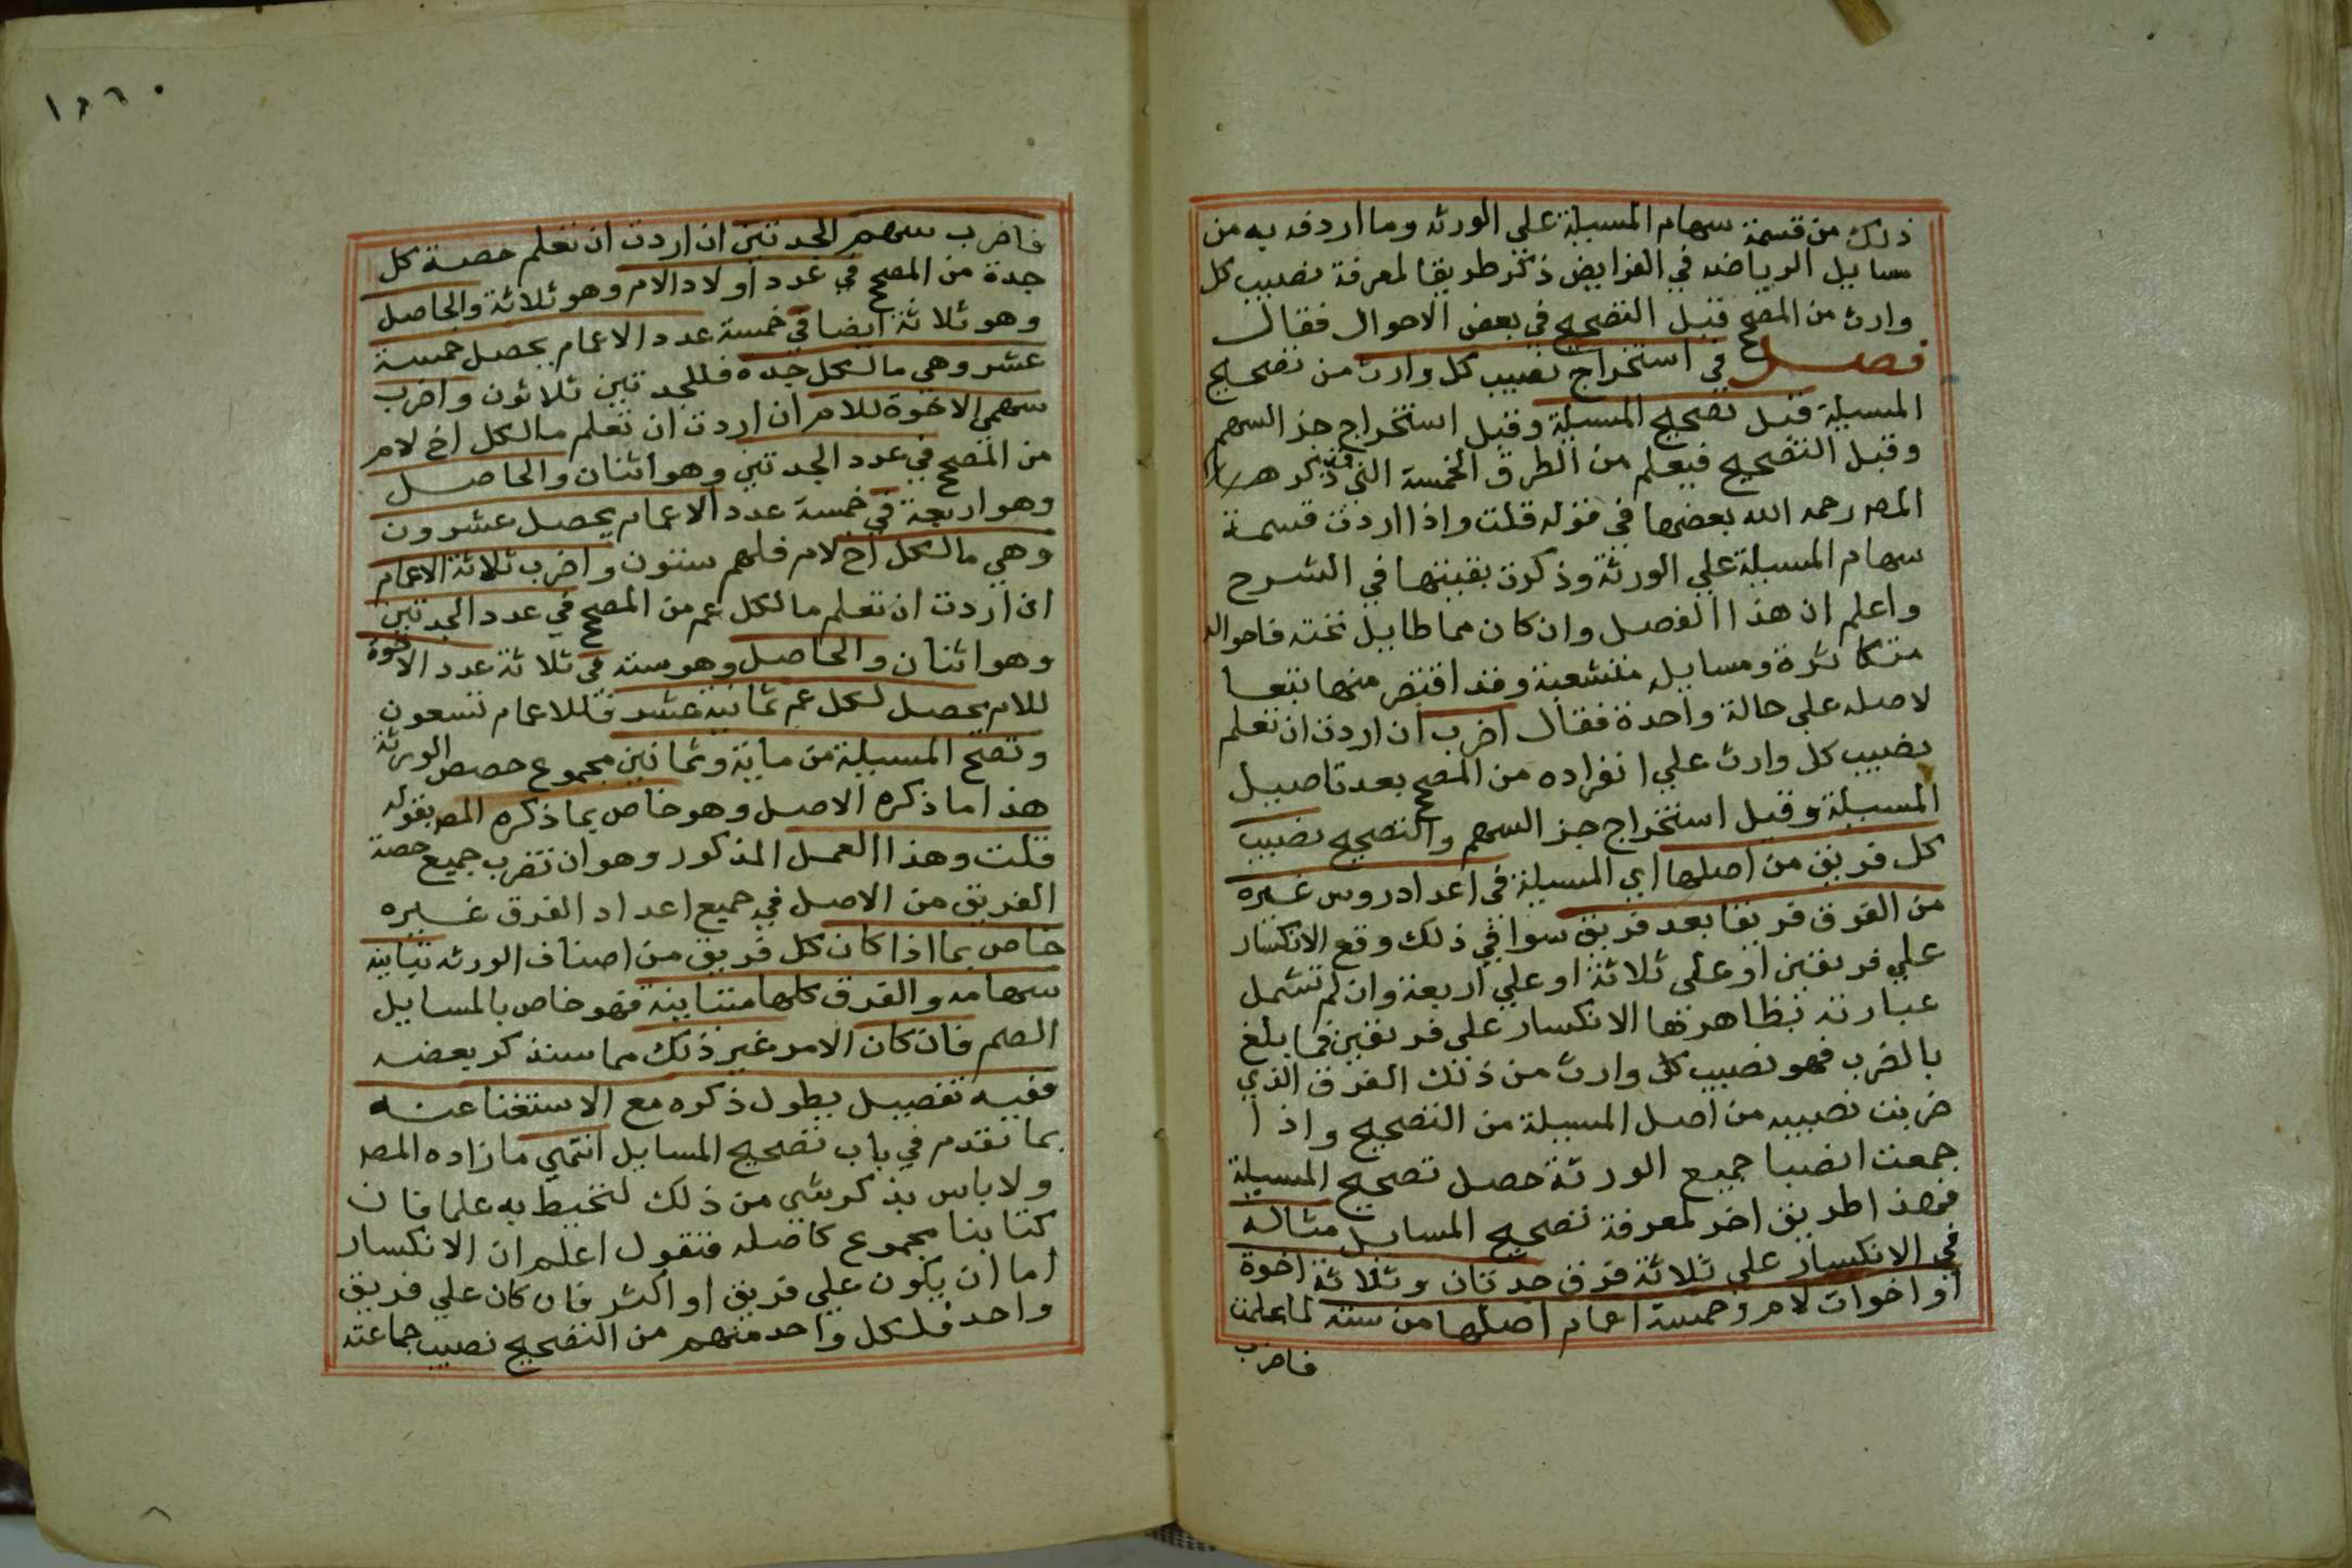 ذلك من قسمة سهام المسيلة علي الورثه وما اردفه به من
مسايل الرياضه في الفرايض ذكر طريقا لمعرفة نصيب كل
وارث من المصحح قبل التصحيح في بعض الاحوال فقال
فصل في استخراج نصيب كل وارث من تصحيح
المسيلة قبل تصحيح المسيلة وقبل استخراج جز السهم
وقبل التصحيح فيعلم من الطرق الخمسة التي ذكر
المصر رحمه الله بعضها في قوله قلت واذا اردت قسمة
سهام المسيلة علي الورثة وذكرت بقيتها في الشرح
واعلم ان هذا الفصل وان كان مما طايل تحته فاحواله
متكاثرة ومسايله متشعبة وقد اقتصر منها تبعا
لاصله علي حالة واحدة فقال اضرب ان اردت ان تعلم
نصيب كل وارث علي انفراده من المصحح بعد تاصيل
المسيلة وقبل استخراج جز السهم والتصحيح نصيب
كل فريق من اصلها اي المسيلة في اعداد روس غيره
من الفرق فريقا بعد فريق سوا في ذلك وقع الانكسار
علي فريقين او علي ثلاثة او علي اربعة وان لم تشمل
عبارته بظاهرها الانكسار علي فريقين فما بلغ
بالضرب فهو نصيب كل وارث من ذلك الفرق الذي
ضربت نصيبه من اصل المسيلة من التصحيح واذا
جمعت انصبا جميع الورثة حصل تصحيح المسيلة
فهذا طريق اخر لمعرفة تصحيح المسايل مثاله
في الانكسار علي ثلاثة فرق جدتان وثلاثة اخوة
او اخوات لام وخمسة اعمام اصلها من ستة لما علمت
فاضرب
فاضرب سهم الجدتين ان اردت ان تعلم حصة كل
جدة من المصحح في عدد اولاد الام وهو ثلاثة والحاصل
وهو ثلاثة ايضا في خمسة عدد الاعمام يحصل خمسة
عشر وهي ما لكل جدة فللجدتين ثلاثون واضرب
سهمي الاخوة للام ان اردت ان تعلم ما لكل اخ لام
من المصحح في عدد الجدتين وهو اثنان والحاصل
وهو اربعة في خمسة عدد الاعمام يحصل عشرون
وهي ما لكل اخ لام فلهم ستون واضرب ثلاثة الاعمام
ان اردت ان تعلم ما لكل عم من المصحح في عدد الجدتين
وهو اثنان والحاصل وهو سته في ثلاثة عدد الاخوة
للام يحصل لكل عم ثمانية عشر فللاعمام تسعون
وتصح المسيلة من ماية وثمانين مجموع حصص الورثة
هذا ما ذكره الاصل وهو خاص بما ذكره المصر بقوله
قلت وهذا العمل المذكور وهو ان تضرب جميع حصة
الفريق من الاصل في جميع اعداد الفرق غيره
خاص بما اذا كان كل فريق من اصناف الورثه تباينه
سهامه والفرق كلها متباينة فهو خاص بالمسايل
الصم فان كان الامر غير ذلك مما سنذكر بعضه
ففيه تفصيل يطول ذكره مع الاستغنا عنه
بما تقدم في باب تصحيح المسايل انتهي ما زاده المصر
ولا باس بذكر شي من ذلك لتحيط به علما فان
كتابنا مجموع كاصله فنقول اعلم ان الانكسار
اما ان يكون علي فريق او اكثر فان كان علي فريق
واحد فلكل واحد منهم من التصحيح نصيب جماعته